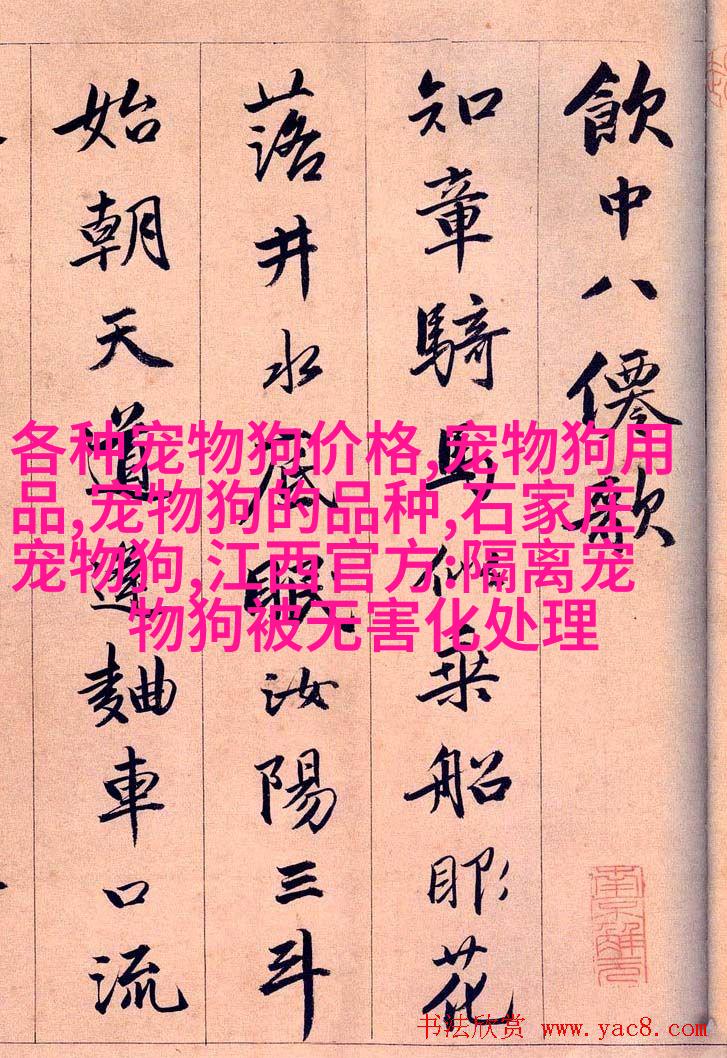 飲中八僊歌
知章騎馬似乗船眼花
落井水底眠汝陽三斗
始朝天道逢麯車口流
各种宠物狗价格,宠物狗用
品,宠物狗的品种,石家庄
宠物狗,江西官方:隔离宠
物狗被无害化处理
南京解元
书法欣赏 www.yac8.com